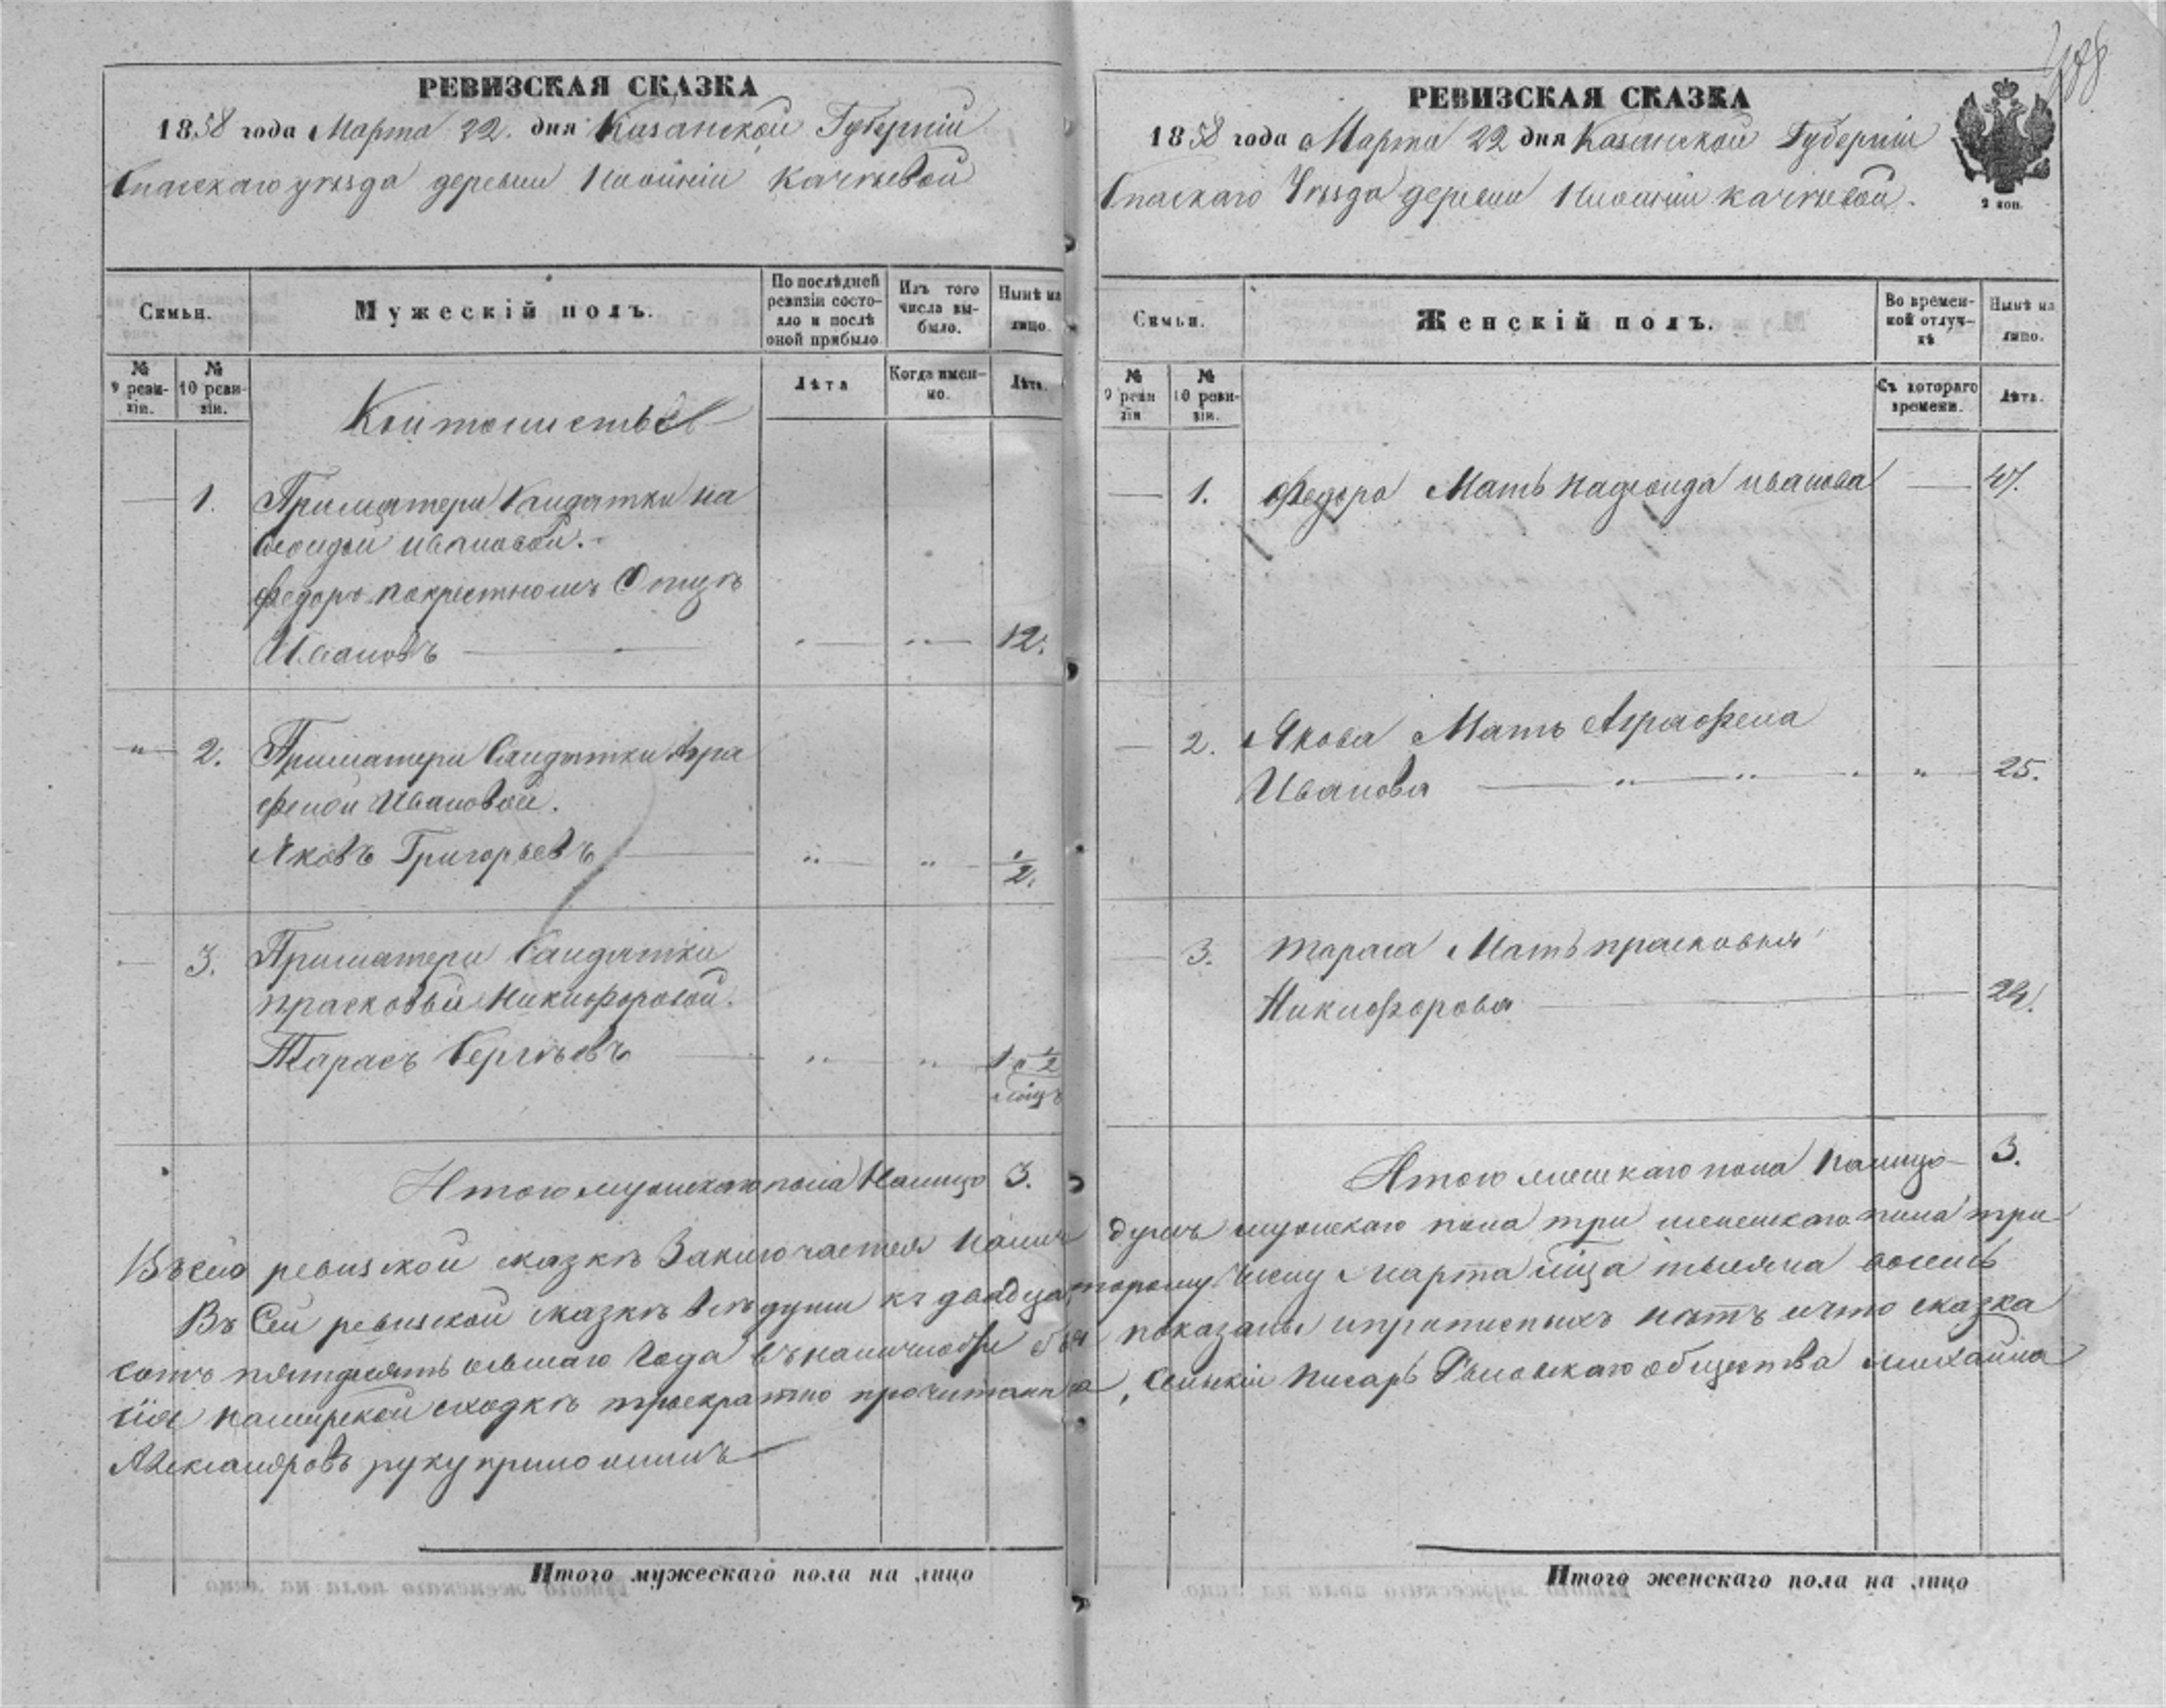 РЕВИЗСКАЯ СКАЗКА
1858 года Марта 22. дня Казанской Губерніи
Спасскаго уѣзда деревни Нижніи Качѣевой
Семьи.
Мужескій полъ.
По послѣдней ревизіи состояло и послѣ оной прибыло
Изъ того числа выбыло.
Нынѣ на лицо.
№ 9 ревизіи.
№ 10 ревизіи.
Лѣта
Когда именно.
Лѣта.
Кантонистовъ
1. При матери Салдатки На
деждой Ивановой.
Федоръ по крестномъ Отцѣ
Ивановъ 12.
2. При матери Салдатки Агра
феной Ивановой.
Яковъ Григорьевъ 1/2.
3. При матери Салдатки
Прасковьи Никифоровой.
Тарасъ Сергѣевъ 1 1/2
мѣцъ
Итого мужскаго пола Налицо 3.
РЕВИЗСКАЯ СКАЗКА
1858 года Марта 22 дня Казанской Губерніи
Спаскаго Уѣзда деревни Нижніи Качѣевой.
2 коп.
Семьи.
Женскій полъ.
Во временной отлучкѣ
Нынѣ на лицо.
№ 9 ревизіи
№ 10 ревизіи.
Съ котораго времени.
Лѣта.
1. Федора Мать Надежда Иванова 47.
2. Якова Мать Аграфена
Иванова 25.
3. Тараса Мать Прасковья
Никифорова 24.
Итого женскаго пола Налицо 3.
ревизской сказкѣ Заключается Налицо душъ мужскаго пола три женскаго пола три
Въ Сей ревизской сказкѣ всѣ души къ двадцать второму числу Марта мца тысяча восемь
сотъ пятдесятъ осьмаго Года въ наличности показаны и прописныхъ нѣтъ и что сказка
сія на мирской сходкѣ троекратно прочитана, Сельскій Писарь общества Михайла
Александровъ руку приложилъ
Итого мужескаго пола на лицо
Итого женскаго пола на лицо